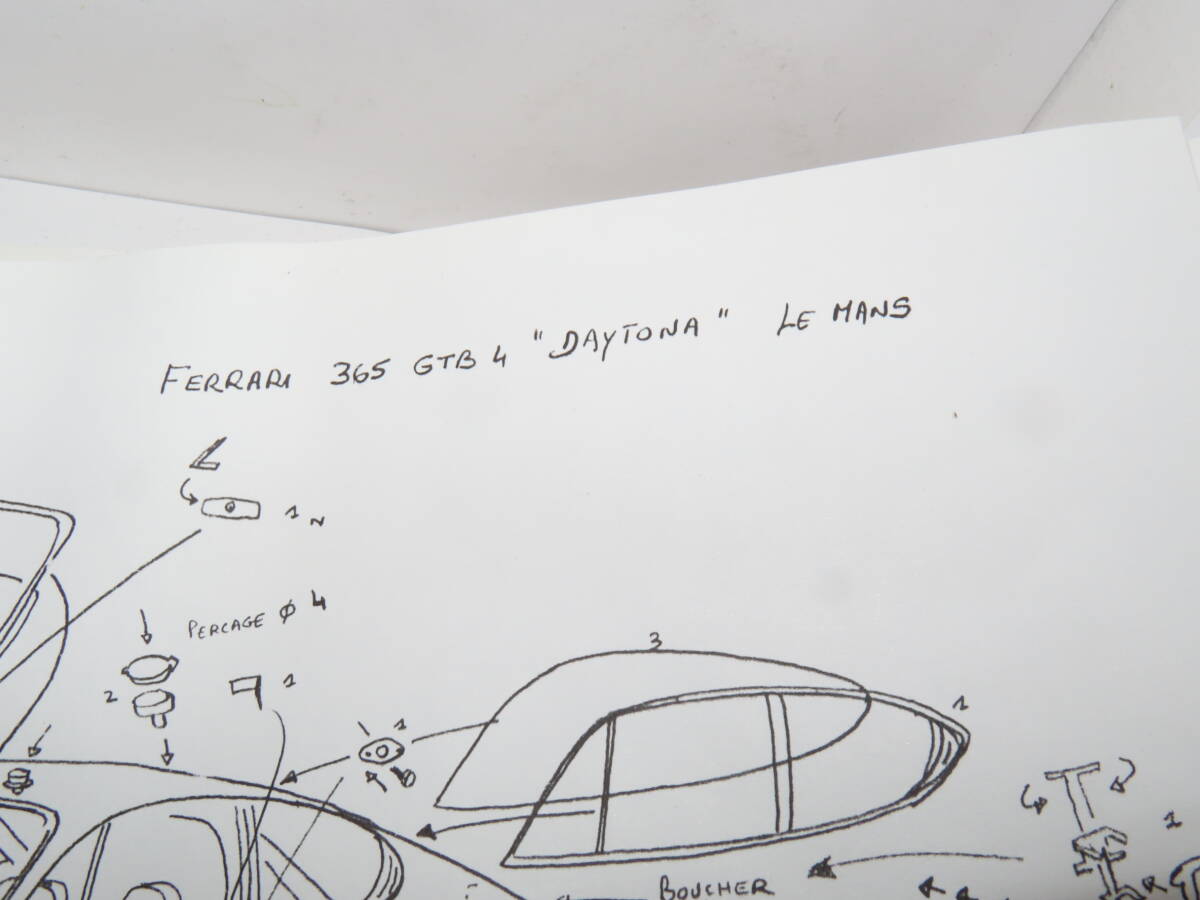 FERRARI 365 GTB 4 "DAYTONA" LE MANS
1 N
PERCAGE Ø 4
2
1
3
1
1
1
BOUCHER